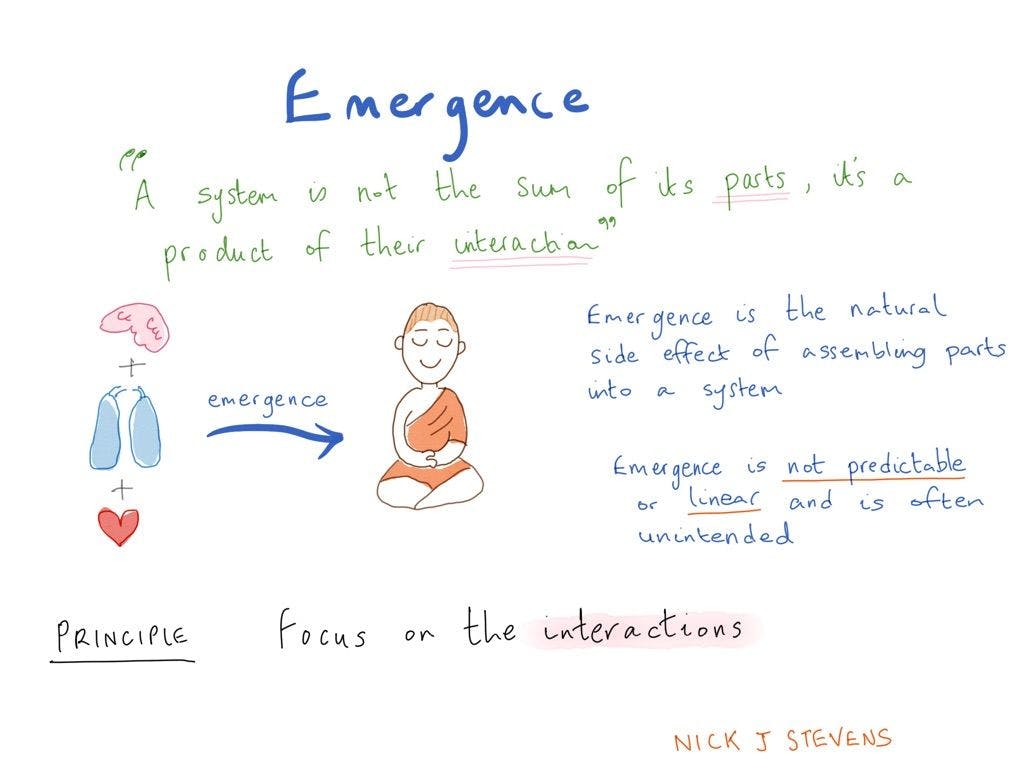 Emergence
"A system is not the sum of its parts, it's a
product of their interaction"
+
+
emergence
Emergence is the natural
side effect of assembling parts
into a system
Emergence is not predictable
or linear and is often
unintended
PRINCIPLE Focus on the interactions
NICK J STEVENS